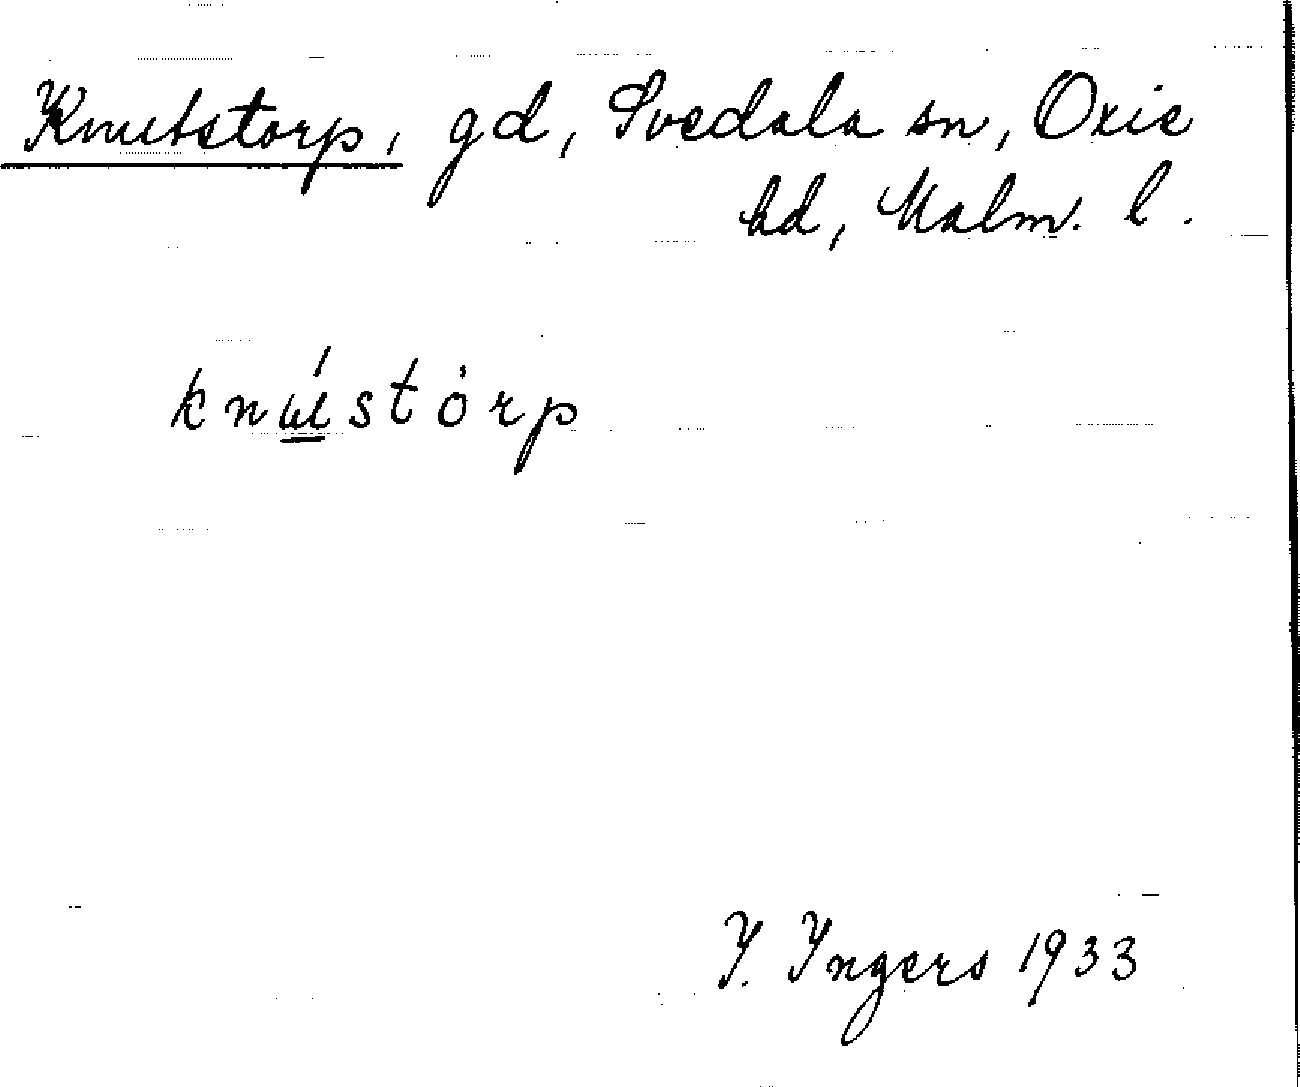 Knutstorp, gd, Svedala sn, Oxie
hd, Malm. l.
knú̲stȯrp
I. Ingers 1933